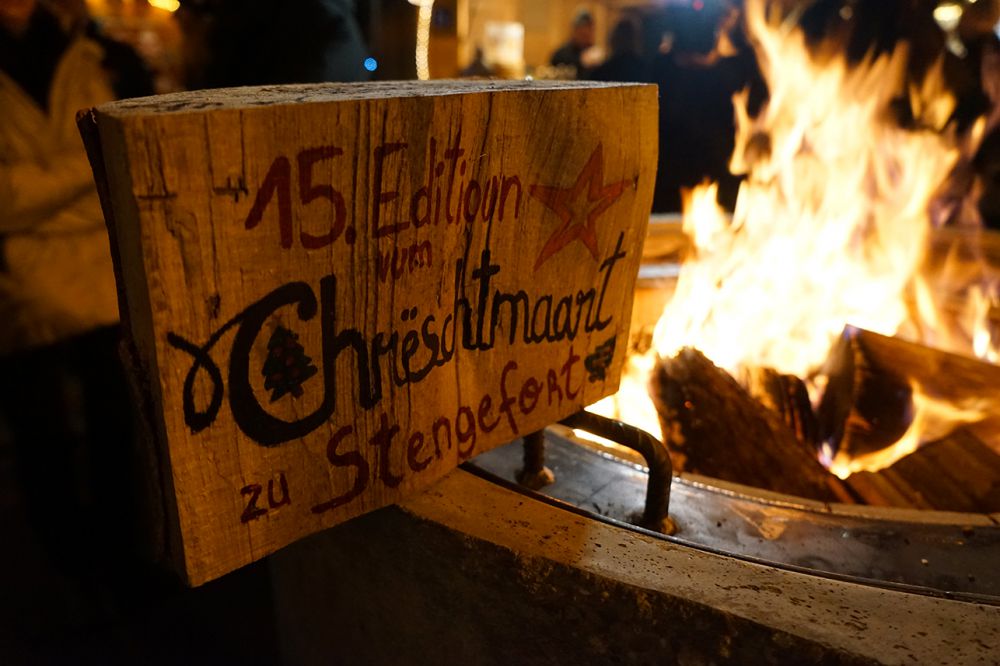 15. Editioun
vum
Chrëschtmaart
zu Stengefort